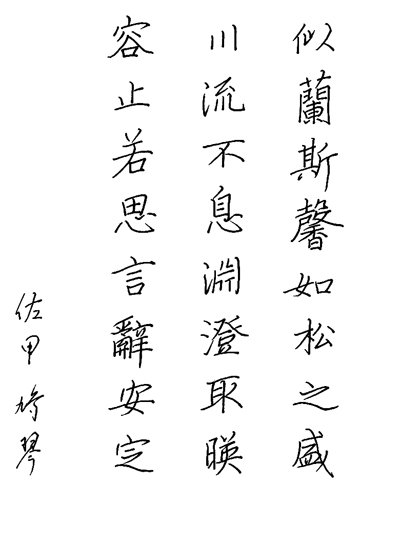 似蘭斯馨如松之盛
川流不息淵澄取暎
容止若思言辭安定
佐甲 琴